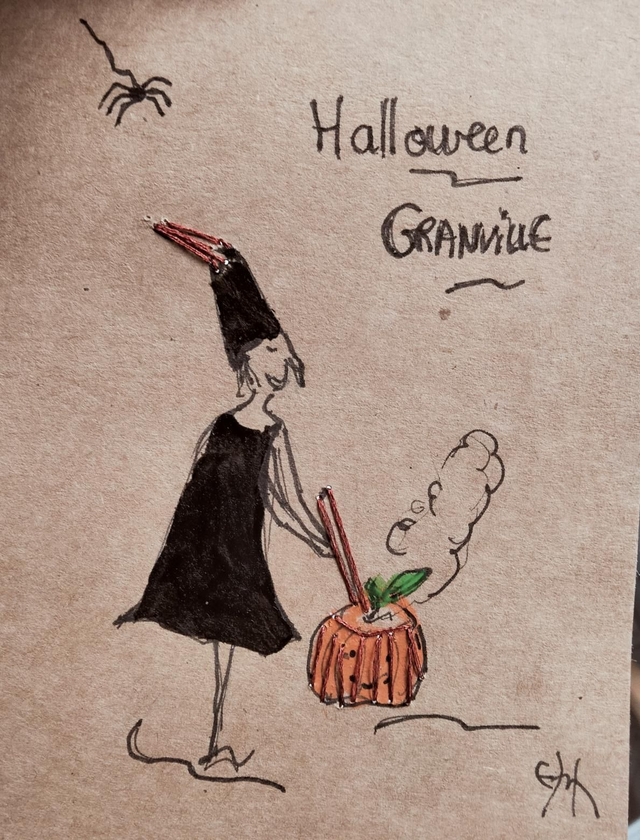 Halloween
GRANVILLE